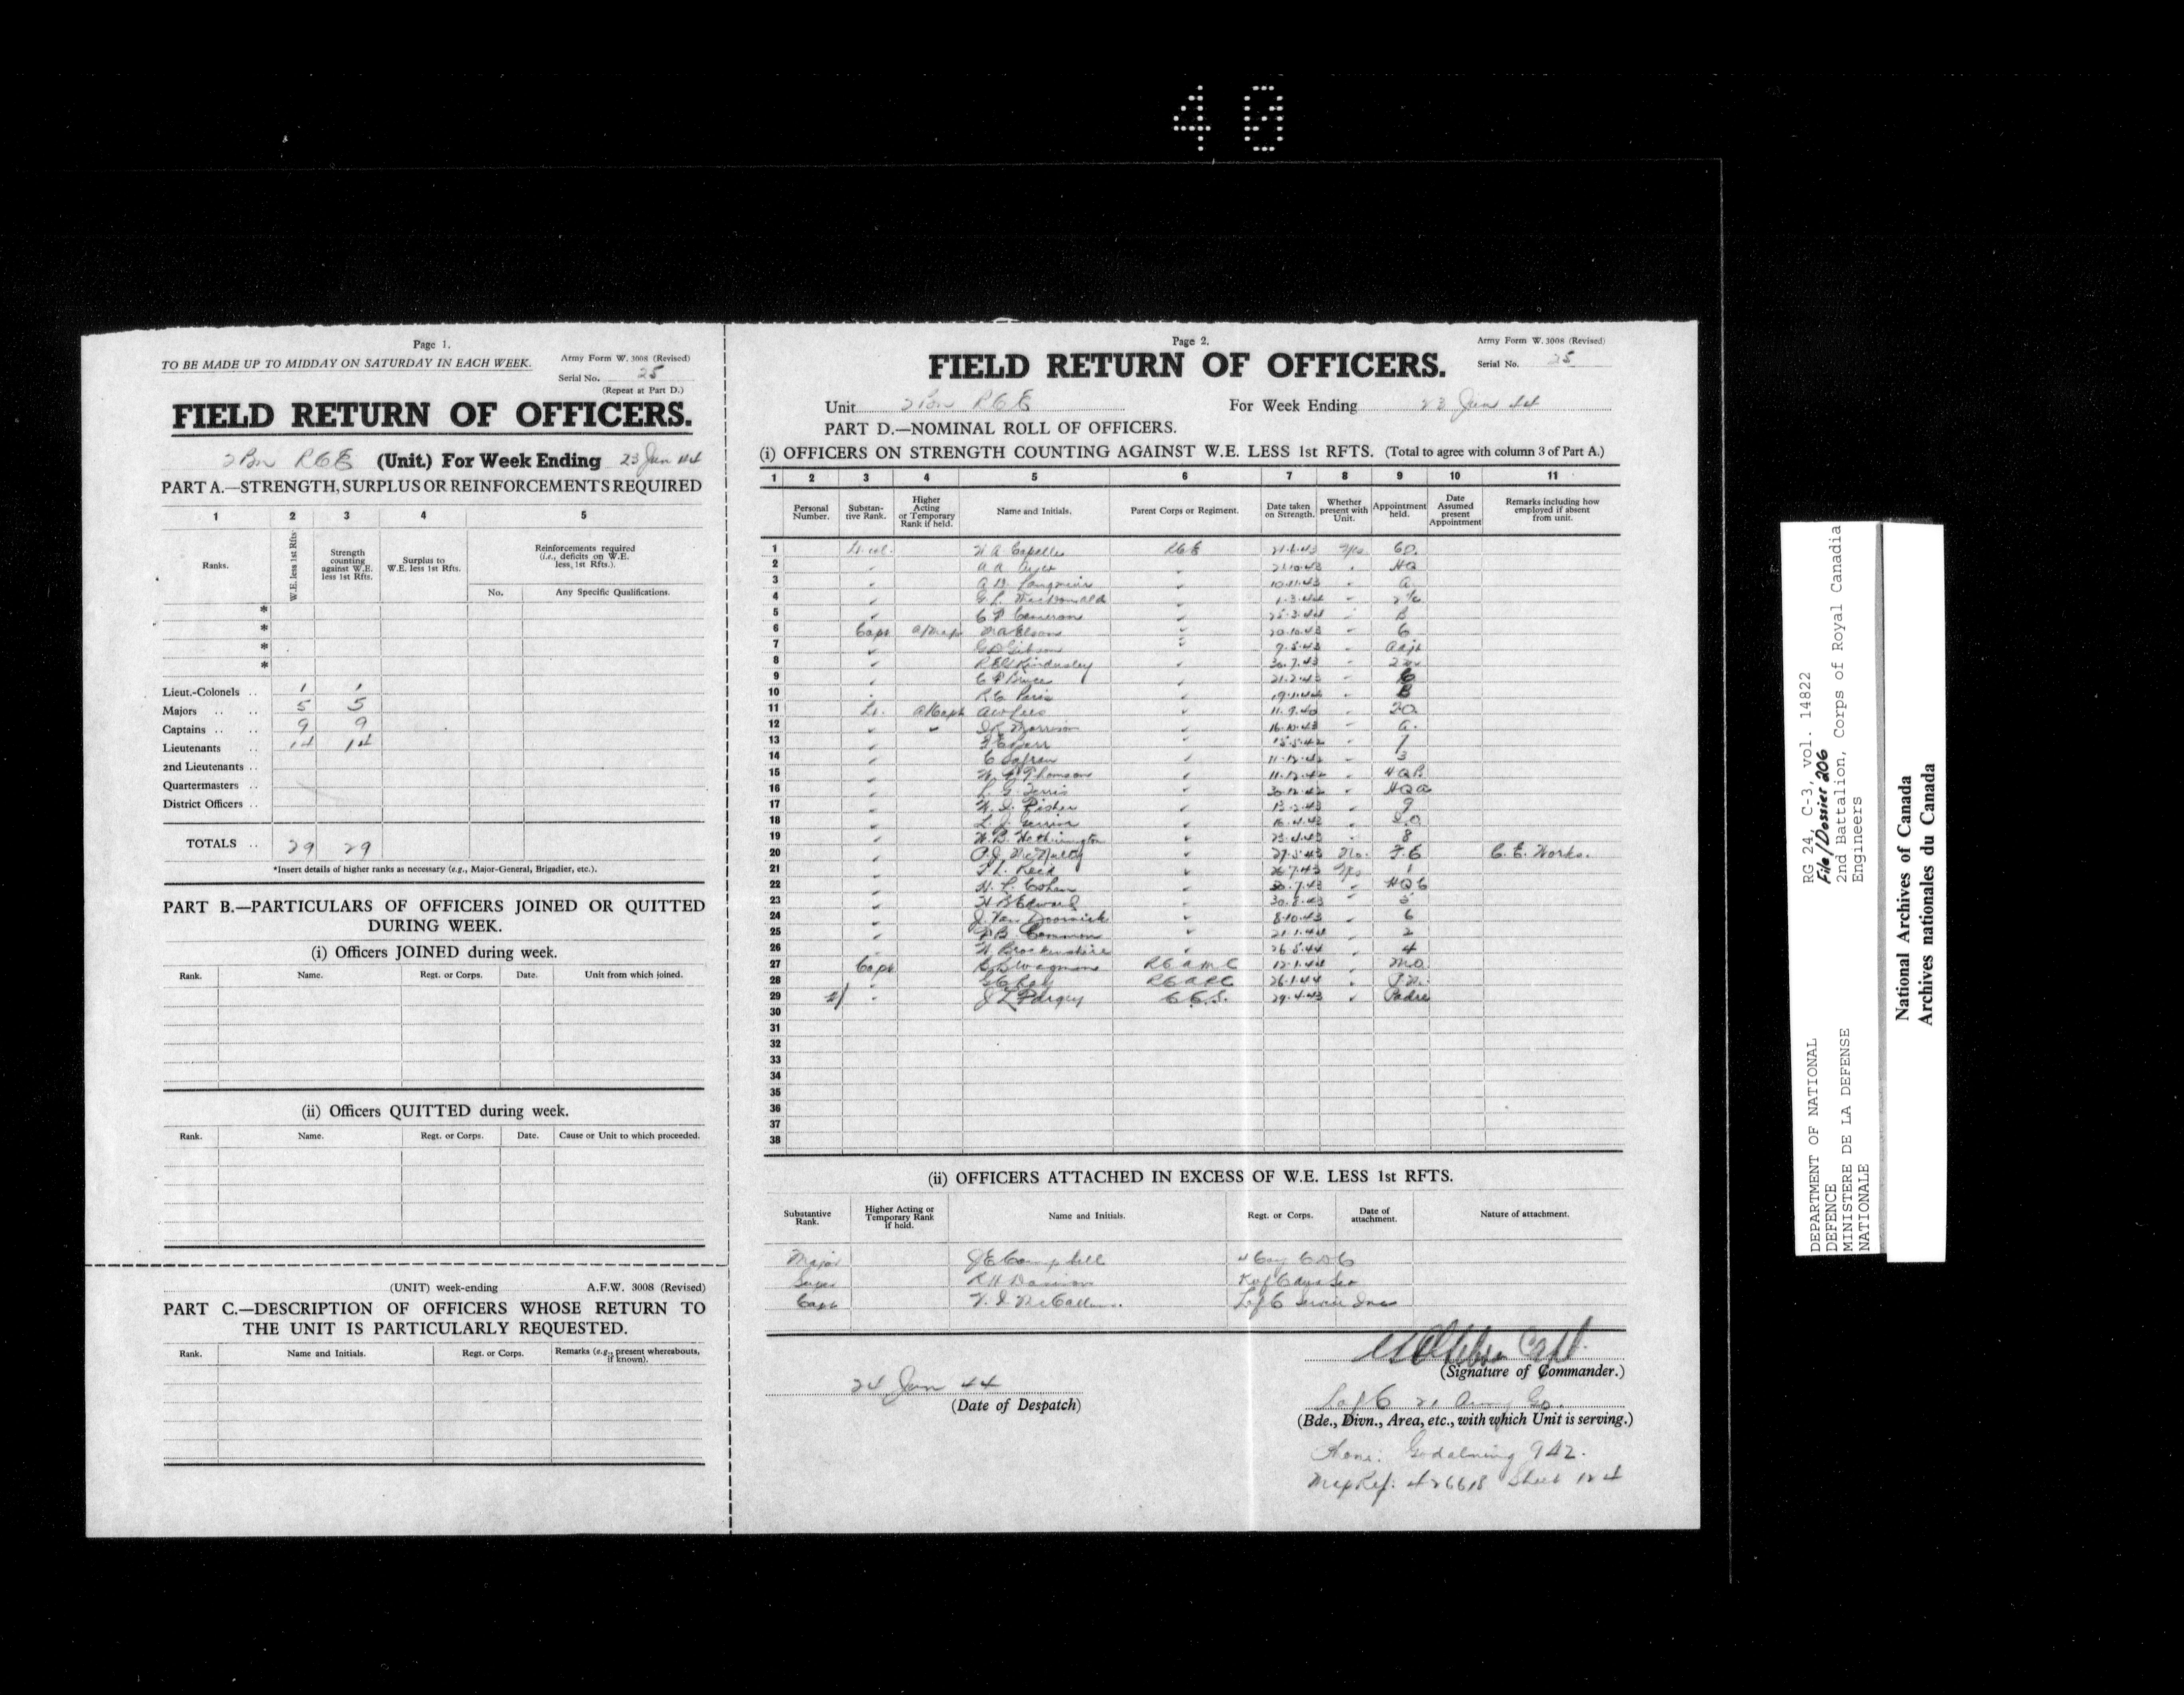 40
Page 1.
TO BE MADE UP TO MIDDAY ON SATURDAY IN EACH WEEK.
Army Form W. 3008 (Revised)
Serial No. 25
(Repeat at Part D.)
FIELD RETURN OF OFFICERS.
2 Bn RCE (Unit.) For Week Ending 23 Jun 44
PART A.—STRENGTH, SURPLUS OR REINFORCEMENTS REQUIRED
1 2 3 4 5
Ranks. W.E. less 1st Rfts Strength counting against W.E. less 1st Rfts. Surplus to W.E. less 1st Rfts. Reinforcements required (i.e., deficits on W.E. less 1st Rfts.).
No. Any Specific Qualifications.
*
*
*
*
Lieut.-Colonels .. 1 1
Majors .. .. 5 5
Captains .. .. 9 9
Lieutenants .. 14 14
2nd Lieutenants ..
Quartermasters ..
District Officers ..
TOTALS .. 29 29
*Insert details of higher ranks as necessary (e.g., Major-General, Brigadier, etc.).
PART B.—PARTICULARS OF OFFICERS JOINED OR QUITTED
DURING WEEK.
(i) Officers JOINED during week.
Rank. Name. Regt. or Corps. Date. Unit from which joined.
(ii) Officers QUITTED during week.
Rank. Name. Regt. or Corps. Date. Cause or Unit to which proceeded.
(UNIT) week-ending A.F.W. 3008 (Revised)
PART C.—DESCRIPTION OF OFFICERS WHOSE RETURN TO
THE UNIT IS PARTICULARLY REQUESTED.
Rank. Name and Initials. Regt. or Corps. Remarks (e.g., present whereabouts, if known).
Page 2.
Army Form W. 3008 (Revised)
FIELD RETURN OF OFFICERS.
Serial No. 25
Unit 2 Bn RCE For Week Ending 23 Jun 44
PART D.—NOMINAL ROLL OF OFFICERS.
(i) OFFICERS ON STRENGTH COUNTING AGAINST W.E. LESS 1st RFTS. (Total to agree with column 3 of Part A.)
1 2 3 4 5 6 7 8 9 10 11
Personal Number. Substantive Rank. Higher Acting or Temporary Rank if held. Name and Initials. Parent Corps or Regiment. Date taken on Strength. Whether present with Unit. Appointment held. Date Assumed present Appointment Remarks including how employed if absent from unit.
1 Lt. col. RCE 21.6.43 Yes CO.
2 HQ
3 10.11.43 A.
4 G L. MacDonald 1.3.44 2 i/c
5 C P Cameron 25.3.44 B
6 Capt A/Maj 20.10.43 C
7 G D Gibson 9.5.43 Adjt
8 R E G Kindersley 30.7.43
9 C P Bruce 21.2.43
10 R C Paris B
11 Lt. A/Capt 11.9.40
12 Morrison 16.10.43 A.
13 15.5.42 7
14 C Safran 11.12.42 3
15 Thomson 11.12.42 HQ B.
16 L. G. Ferris 30.12.42 HQ A
17 W. J. Fisher 13.2.43 9
18 16.4.43
19 W. B. Hetherington 23.4.43 8
20 P. J. McNulty 27.5.43 No. C. E. Works.
21 Reid 26.7.43 Yes 1
22 H. L. Cohen 30.7.43 HQ C
23 H B Edward 30.8.43 5
24 J. Van Doornick 8.10.43 6
25 Common 21.1.44 2
26 W Brockenshire 26.5.44 4
27 Capt RCAMC 12.1.44 M.O.
28 26.1.44
29 C.C.S. 29.4.43 Padre
30
31
32
33
34
35
36
37
38
(ii) OFFICERS ATTACHED IN EXCESS OF W.E. LESS 1st RFTS.
Substantive Rank. Higher Acting or Temporary Rank if held. Name and Initials. Regt. or Corps. Date of attachment. Nature of attachment.
Major J E Campbell
R H Davison
Capt McCallum
Capt.
(Signature of Commander.)
24 Jun 44
(Date of Despatch)
21 Army Gp.
(Bde., Divn., Area, etc., with which Unit is serving.)
Phone: Godalming 942.
Map Ref: 426618 Sheet 124
DEPARTMENT OF NATIONAL
DEFENCE
MINISTERE DE LA DEFENSE
NATIONALE
RG 24, C-3, vol. 14822
File/Dossier 206
2nd Battalion, Corps of Royal Canadia
Engineers
National Archives of Canada
Archives nationales du Canada